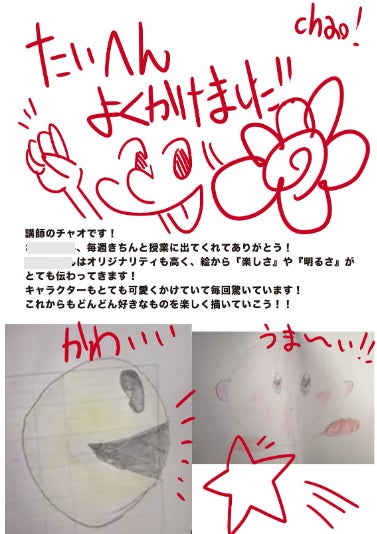 chao!
たいへん
よくかけました!!
講師のチャオです!
、毎週きちんと授業に出てくれてありがとう!
はオリジナリティも高く、絵から『楽しさ』や『明るさ』が
とても伝わってきます!
キャラクターもとても可愛くかけていて毎回驚いています!
これからもどんどん好きなものを楽しく描いていこう!!
かわいい
うまーい!!